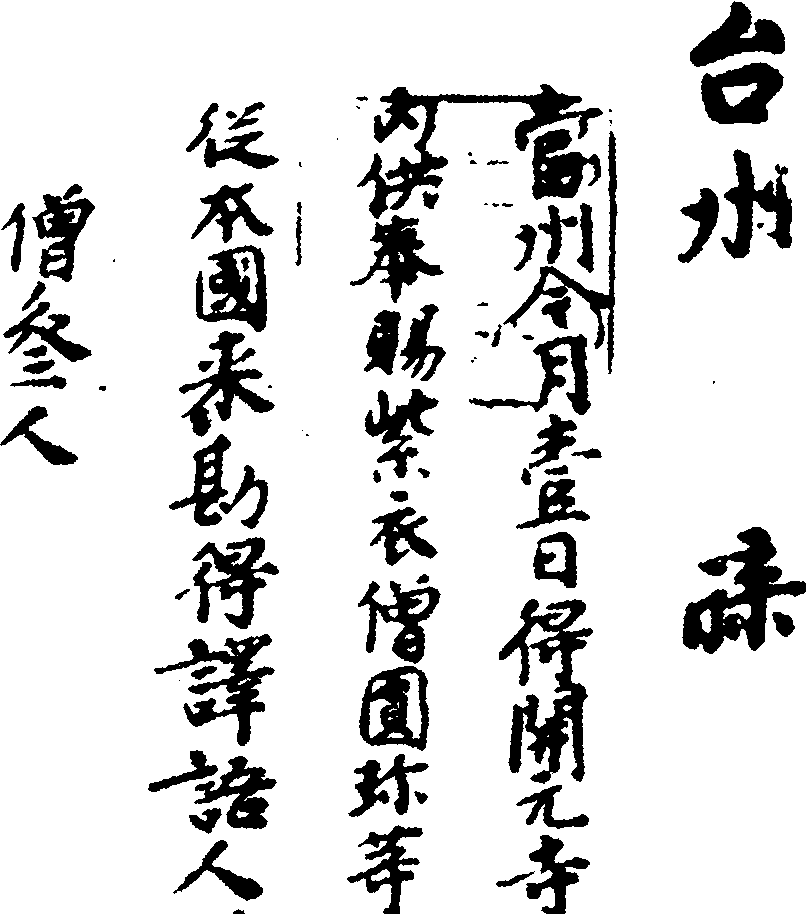 台州 牒
當州今月壹日得開元寺
內供奉賜紫衣僧圓珍等
從本國來勘得譯語人
僧叄人